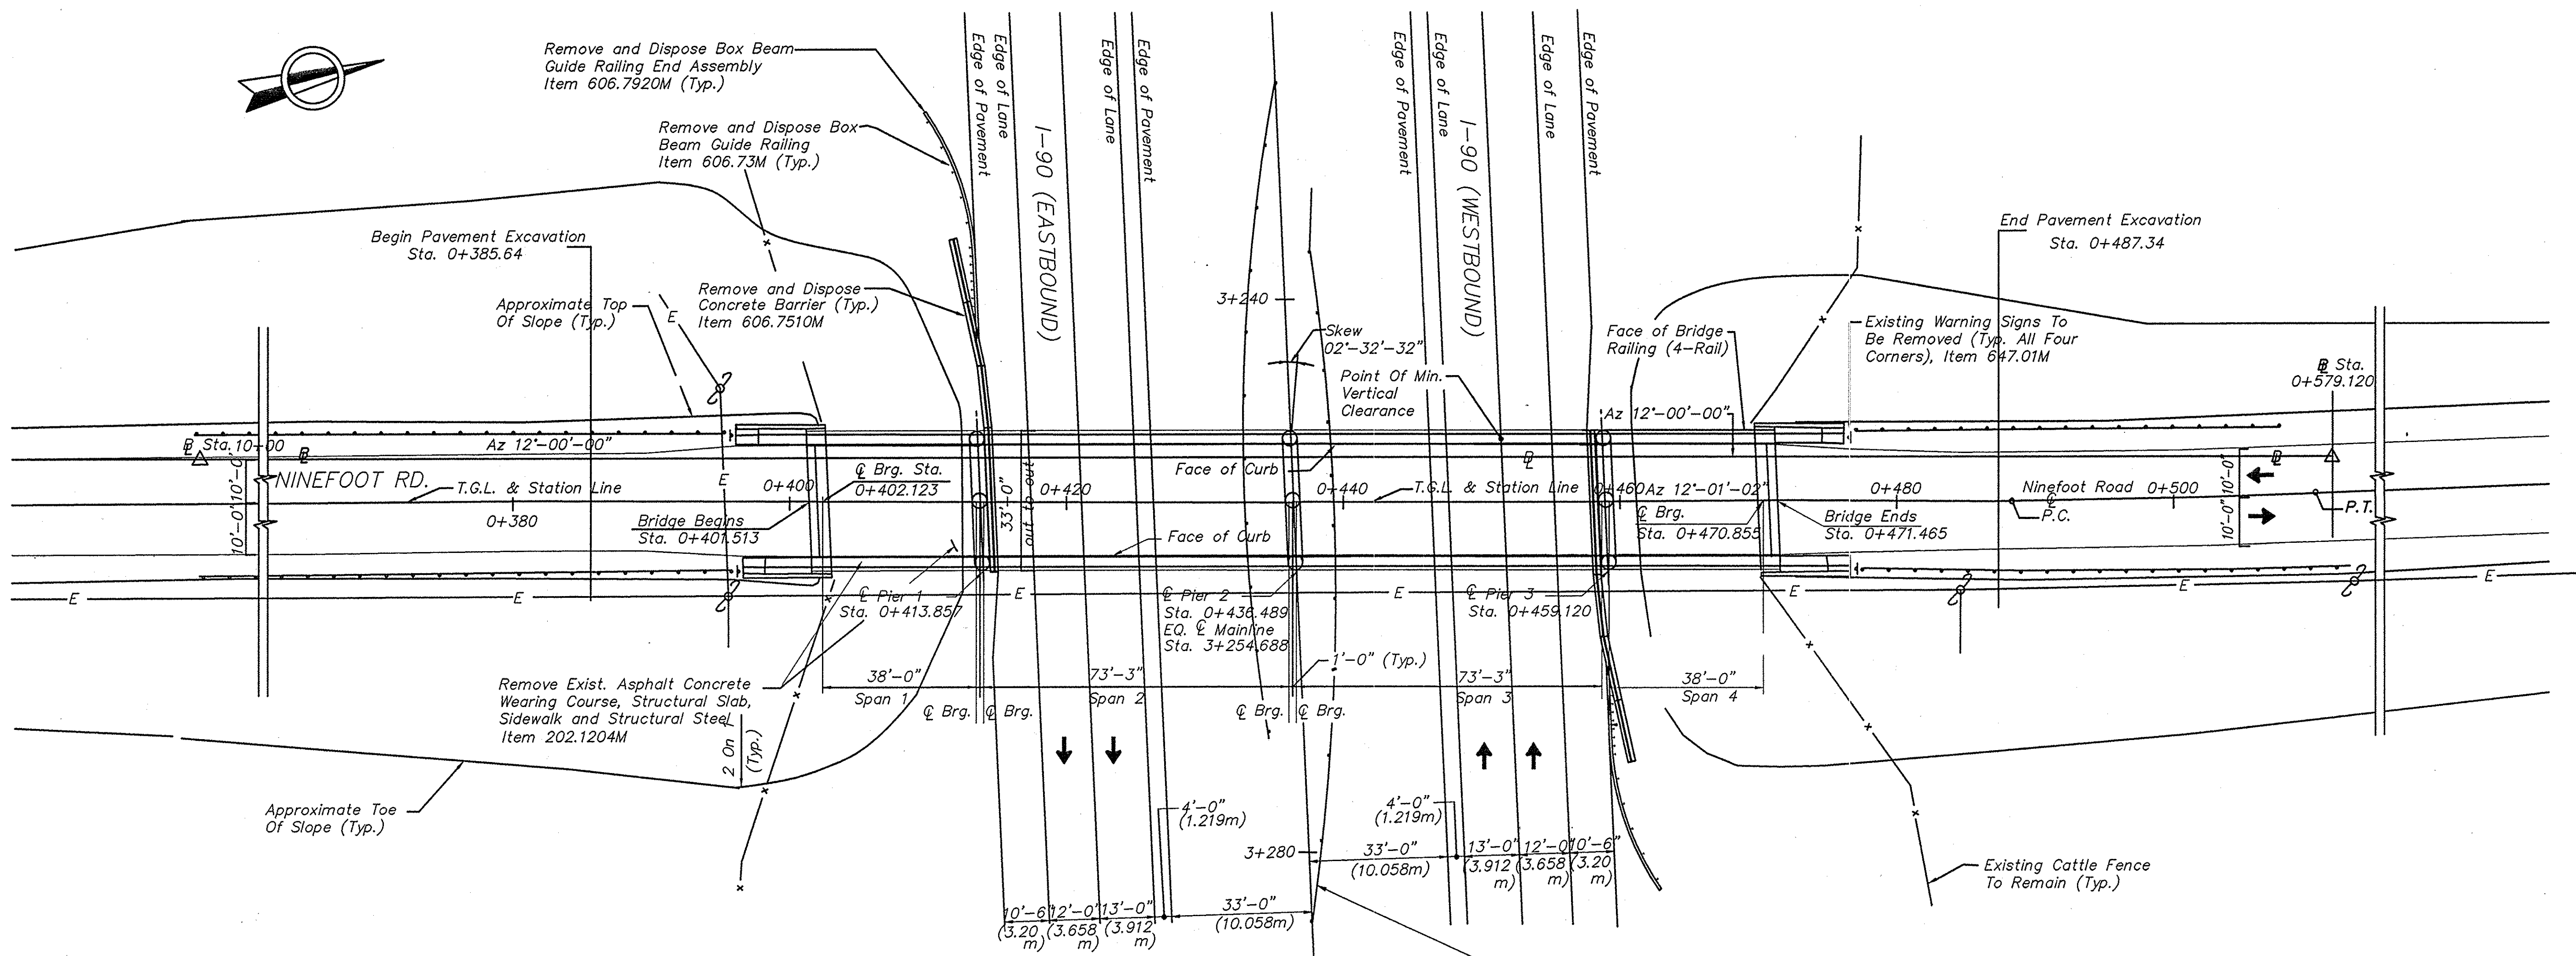 Remove and Dispose Box Beam
Guide Railing End Assembly
Item 606.7920M (Typ.)
Remove and Dispose Box
Beam Guide Railing
Item 606.73M (Typ.)
Edge of Pavement
Edge of Lane
I-90 (EASTBOUND)
Edge of Lane
Edge of Pavement
Edge of Pavement
Edge of Lane
I-90 (WESTBOUND)
Edge of Lane
Edge of Pavement
Begin Pavement Excavation
Sta. 0+385.64
Approximate Top
Of Slope (Typ.)
E
Remove and Dispose
Concrete Barrier (Typ.)
Item 606.7510M
3+240
Skew
02°-32'-32"
Point Of Min.
Vertical
Clearance
Face of Bridge
Railing (4-Rail)
End Pavement Excavation
Sta. 0+487.34
Existing Warning Signs To
Be Removed (Typ. All Four
Corners), Item 647.01M
BL Sta.
0+579.120
BL Sta. 10+00
BL
Az 12°-00'-00"
Az 12°-00'-00"
BL
BL
NINEFOOT RD.
10'-0"
10'-0"
T.G.L. & Station Line
0+380
E
0+400
℄ Brg. Sta.
0+402.123
Bridge Begins
Sta. 0+401.513
33'-0"
out to out
0+420
Face of Curb
Face of Curb
0+440
T.G.L. & Station Line
0+460
Az 12°-01'-02"
℄ Brg.
Sta. 0+470.855
Bridge Ends
Sta. 0+471.465
0+480
Ninefoot Road
℄
0+500
P.C.
P.T.
10'-0"
10'-0"
E
E
E
E
E
E
E
℄ Pier 1
Sta. 0+413.857
℄ Pier 2
Sta. 0+436.489
EQ. ℄ Mainline
Sta. 3+254.688
℄ Pier 3
Sta. 0+459.120
1'-0" (Typ.)
Remove Exist. Asphalt Concrete
Wearing Course, Structural Slab,
Sidewalk and Structural Steel
Item 202.1204M
38'-0"
Span 1
73'-3"
Span 2
73'-3"
Span 3
38'-0"
Span 4
℄ Brg.
℄ Brg.
℄ Brg.
℄ Brg.
2 On 1
(Typ.)
Approximate Toe
Of Slope (Typ.)
4'-0"
(1.219m)
4'-0"
(1.219m)
3+280
33'-0"
(10.058m)
13'-0"
(3.912
m)
12'-0"
(3.658
m)
10'-6"
(3.20
m)
10'-6"
(3.20
m)
12'-0"
(3.658
m)
13'-0"
(3.912
m)
33'-0"
(10.058m)
Existing Cattle Fence
To Remain (Typ.)